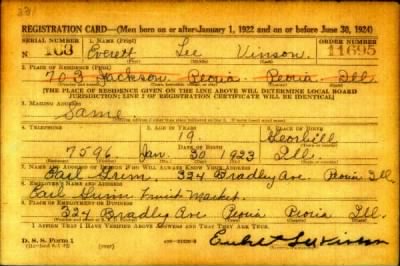 REGISTRATION CARD—(Men born on or after January 1, 1922 and on or before June 30, 1924)
SERIAL NUMBER 1. NAME (Print) ORDER NUMBER
N 103 Everett Lee Vinson 11695
2. PLACE OF RESIDENCE (Print)
703 Jackson Peoria Peoria Ill
[THE PLACE OF RESIDENCE GIVEN ON THE LINE ABOVE WILL DETERMINE LOCAL BOARD
JURISDICTION; LINE 2 OF REGISTRATION CERTIFICATE WILL BE IDENTICAL]
3. MAILING ADDRESS
Same
4. TELEPHONE 5. AGE IN YEARS 6. PLACE OF BIRTH
19
DATE OF BIRTH
7596 Jan. 30 1923 Ill.
7. NAME AND ADDRESS OF PERSON WHO WILL ALWAYS KNOW YOUR ADDRESS
324 Bradley Ave. Peoria Ill
8. EMPLOYER'S NAME AND ADDRESS
Fruit Market
9. PLACE OF EMPLOYMENT OR BUSINESS
324 Bradley Ave Peoria Peoria Ill.
I AFFIRM THAT I HAVE VERIFIED ABOVE ANSWERS AND THAT THEY ARE TRUE.
D. S. S. Form 1